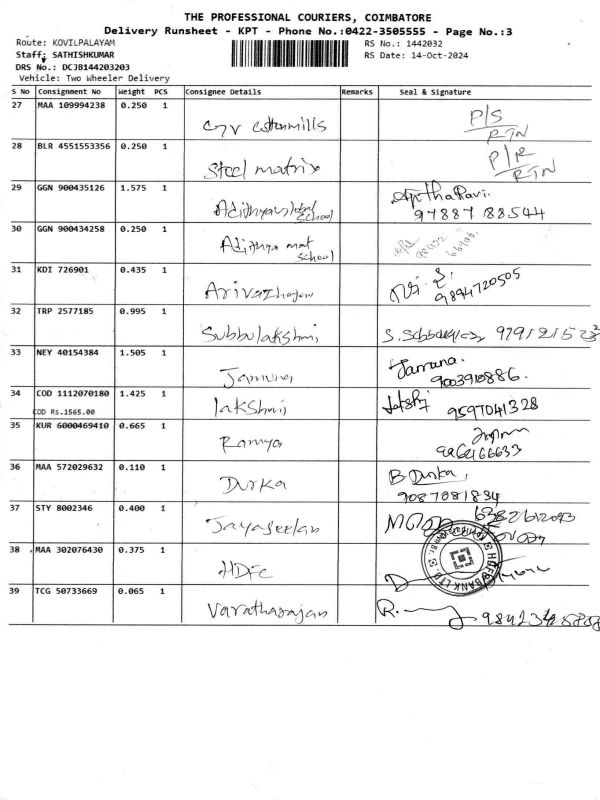 THE PROFESSIONAL COURIERS, COIMBATORE
Delivery Runsheet - KPT - Phone No.:0422-3505555 - Page No.:3
Route: KOVILPALAYAM RS No.: 1442032
Staff: SATHISHKUMAR RS Date: 14-Oct-2024
DRS No.: DCJB144203203
Vehicle: Two Wheeler Delivery
S No Consignment No Weight PCS Consignee Details Remarks Seal & Signature
27 MAA 109994238 0.250 1 P/S
cottonmills RTN
28 BLR 4551553356 0.250 1 P/R
Steel matrix RTN
29 GGN 900435126 1.575 1
School 97887 88544
30 GGN 900434258 0.250 1
Adithya mat
School
31 KDI 726901 0.435 1
9894720505
32 TRP 2577185 0.995 1
Subbulakshmi
33 NEY 40154384 1.505 1 Jamuna.
Jamuna 9003910886.
34 COD 1112070180 1.425 1
COD Rs.1565.00 lakshmi 9597041328
35 KUR 6000469410 0.665 1
Ramya
36 MAA 572029632 0.110 1 B Durka,
Durka 9087081834
37 STY 8002346 0.400 1
Jayaseelan
38 MAA 302076430 0.375 1
HDFC HDFC BANK LTD
39 TCG 50733669 0.065 1
Varatharajan R.